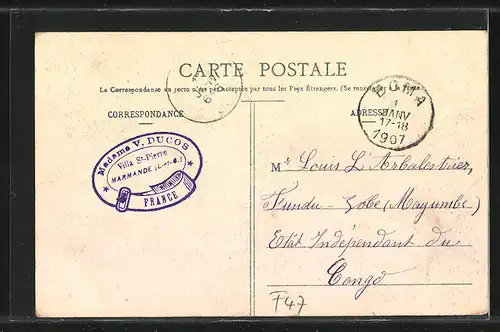 CARTE POSTALE
La Correspondance au recto n'est pas acceptée par tous les Pays Étrangers. (Se renseigner à la Poste)
CORRESPONDANCE
ADRESSE
BOMA
1
JANV
17-18
1907
Madame V. DUCOS
Villa St-Pierre
MARMANDE (L.-et-G.)
FRANCE
Mr Louis L'Arbalestrier,
Fundu-Zobe (Mayumbe)
Etat Indépendant du
Congo
F47